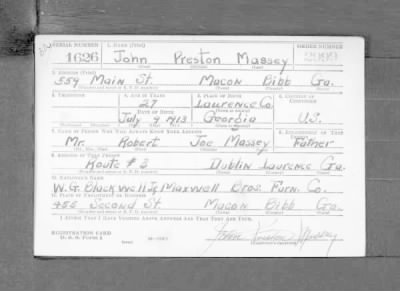 SERIAL NUMBER 1. NAME (Print) ORDER NUMBER
1626 John Preston Massey 2099
(First) (Middle) (Last)
2. ADDRESS (Print)
559 Main St. Macon Bibb Ga.
3. TELEPHONE 4. AGE IN YEARS 5. PLACE OF BIRTH 6. COUNTRY OF CITIZENSHIP
27 Laurence Co.
DATE OF BIRTH
July 9 1913 Georgia U.S.
7. NAME OF PERSON WHO WILL ALWAYS KNOW YOUR ADDRESS 8. RELATIONSHIP OF THAT PERSON
Mr. Robert Joe Massey Father
9. ADDRESS OF THAT PERSON
Route # 3 Dublin Laurence Ga.
10. EMPLOYER'S NAME
W.G. Blackwell Maxwell Bros. Furn. Co.
11. PLACE OF EMPLOYMENT OR BUSINESS
455 Second St. Macon Bibb Ga.
I AFFIRM THAT I HAVE VERIFIED ABOVE ANSWERS AND THAT THEY ARE TRUE.
REGISTRATION CARD
D. S. S. Form 1
John Preston Massey